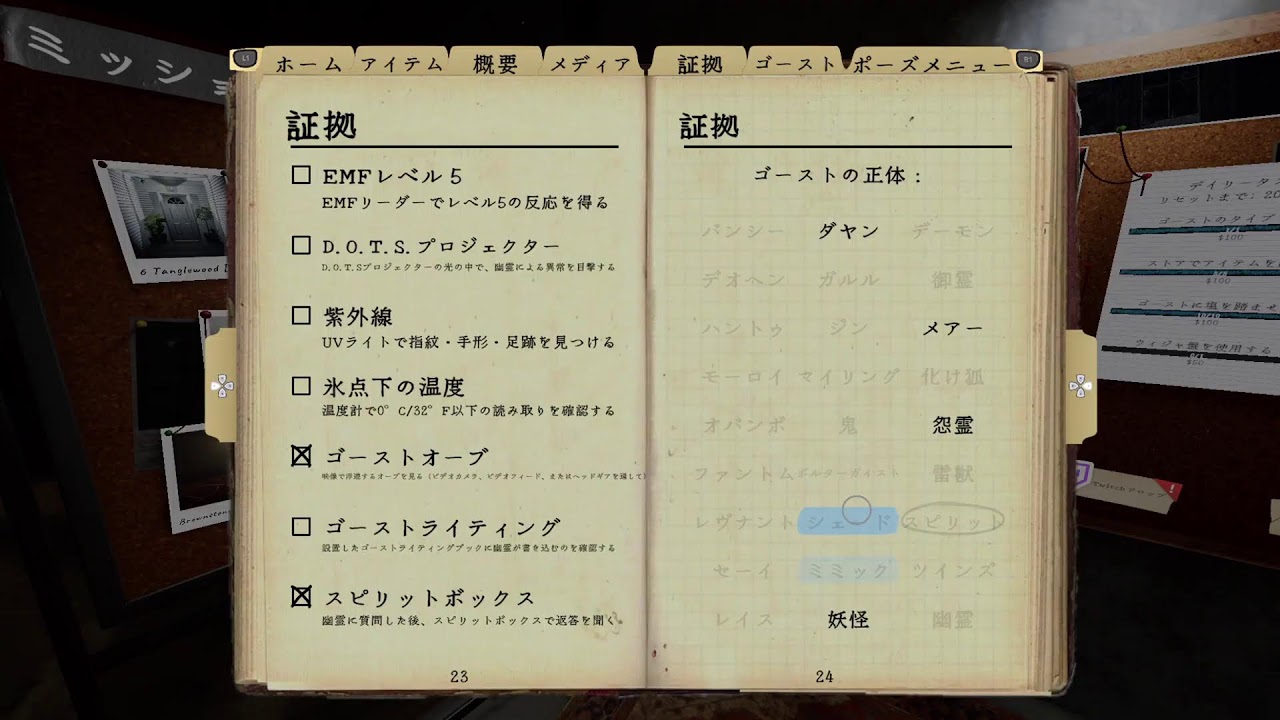 ミッショ
L1
ホーム
アイテム
概要
メディア
証拠
ゴースト
ポーズメニュー
R1
証拠
EMFレベル５
EMFリーダーでレベル5の反応を得る
D.O.T.S.プロジェクター
D.O.T.Sプロジェクターの光の中で、幽霊による異常を目撃する
紫外線
UVライトで指紋・手形・足跡を見つける
氷点下の温度
温度計で0°C/32°F以下の読み取りを確認する
ゴーストオーブ
映像で浮遊するオーブを見る (ビデオカメラ、ビデオフィード、またはヘッドギアを通して)
ゴーストライティング
設置したゴーストライティングブックに幽霊が書き込むのを確認する
スピリットボックス
幽霊に質問した後、スピリットボックスで返答を聞く
23
証拠
ゴーストの正体：
バンシー ダヤン デーモン
デオヘン ガルル 御霊
ハントゥ ジン メアー
モーロイ マイリング 化け狐
オバンボ 鬼 怨霊
ファントム ポルターガイスト 雷獣
レヴナント シェード スピリット
セーイ ミミック ツインズ
レイス 妖怪 幽霊
24
6 Tanglewood
Brownstone
デイリータ
リセットまで: 20
ゴーストのタイプ
$100
ストアでアイテムを
$100
ゴーストに塩を踏ませ
$100
ウィジャ盤を使用する
$0
Twitchドロップ